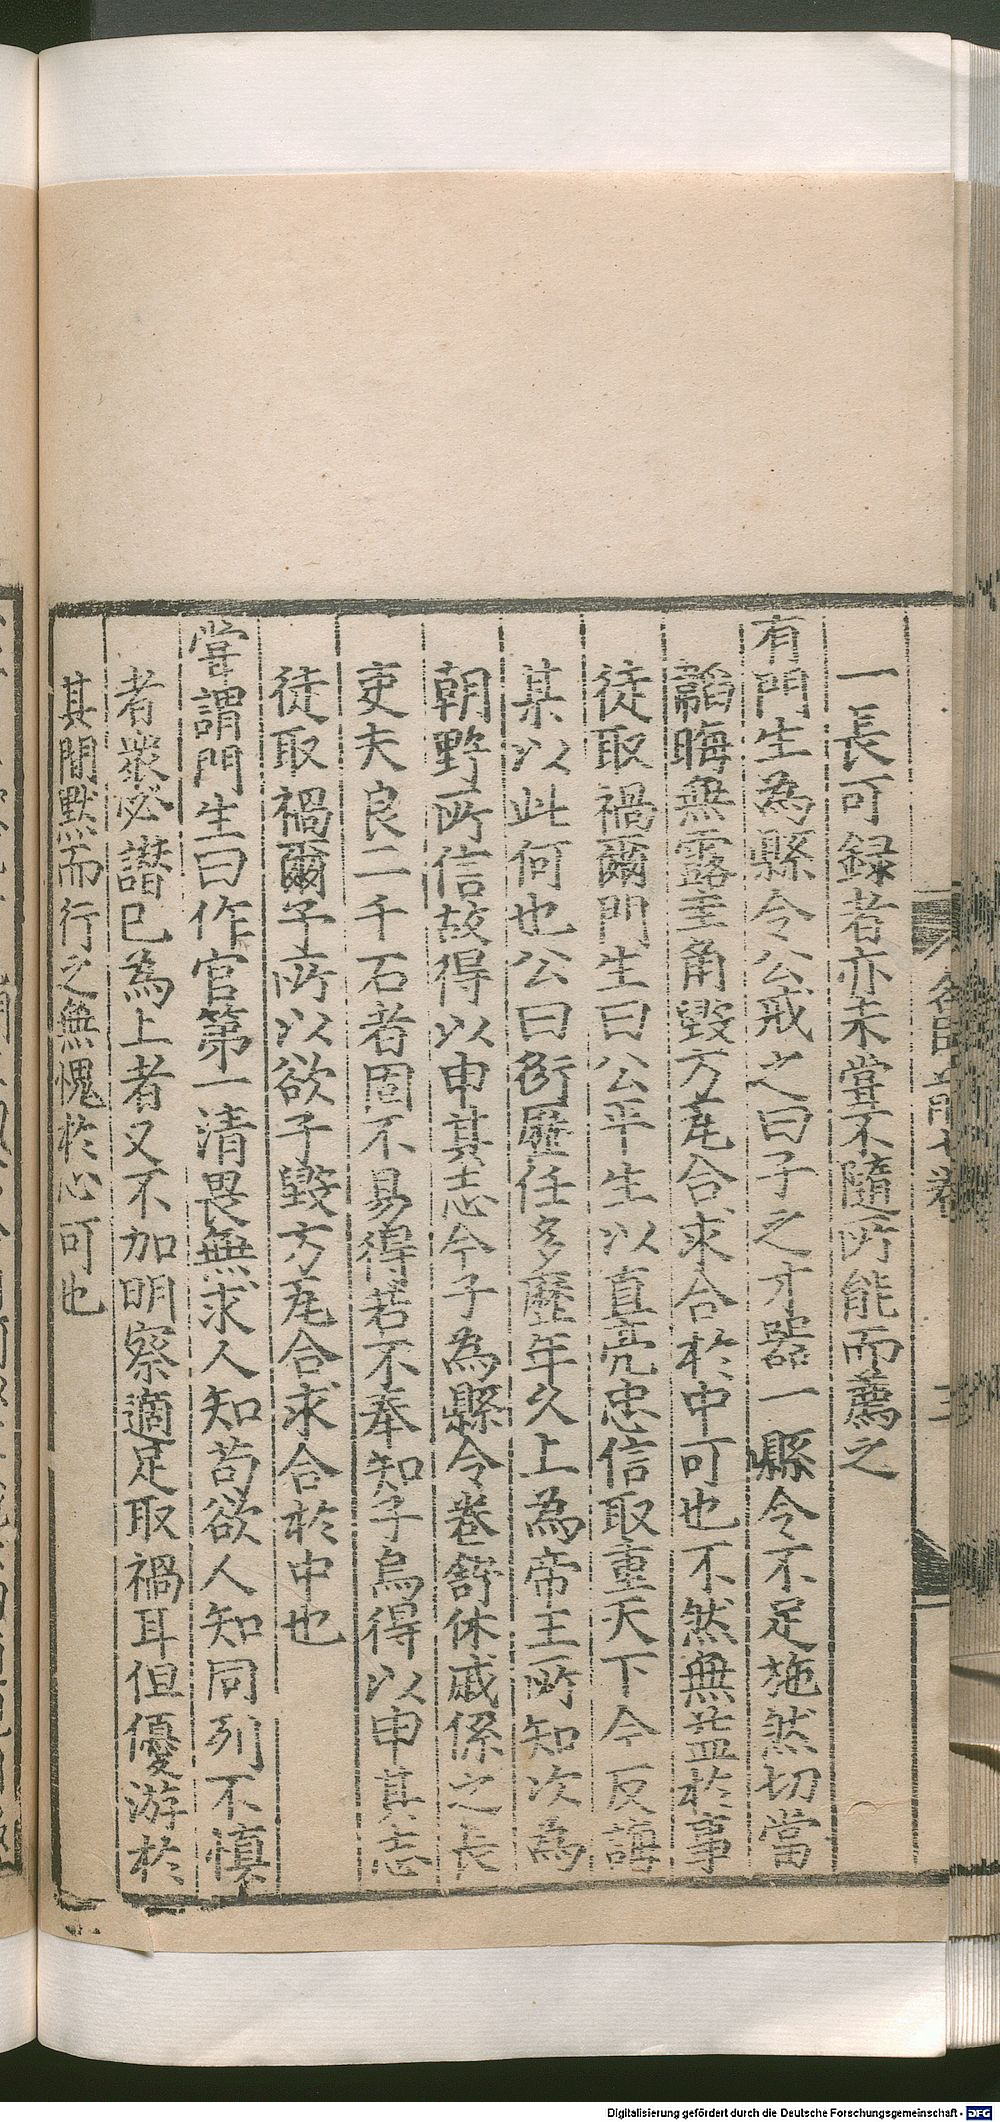 一長可録者亦未嘗不隨所能而薦之
有門生為縣令公戒之曰子之才器一縣令不足施然切當
韜晦無露圭角毀方尾合求合於中可也不然無益於事
徒取禍爾門生曰公平生以直亮忠信取重天下今反誨
某以此何也公曰衍歷任多歷年久上為帝王所知次為
朝野所信故得以申其志今子為縣令卷舒休戚係之長
吏夫良二千石者固不易得若不奉知子烏得以申其志
徒取禍爾予所以欲子毀方尾合求合於中也
嘗謂門生曰作官第一清畏無求人知苟欲人知同列不慎
者衆必譖已為上者又不加明察適足取禍耳但優游於
其間默而行之無愧於心可也
Digitalisierung gefördert durch die Deutsche Forschungsgemeinschaft - DFG